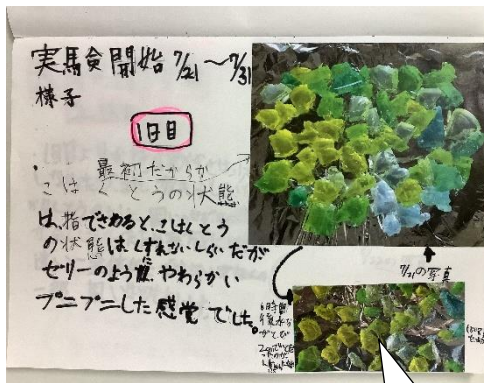 実験開始 7/21 〜 7/31
様子
1日目
最初だからか
こはくとうの状態
は、指でさわると、こはくとう
の状態は、くずれないくらいだが
ゼリーのように、やわらかい
プニプニした感覚でした。
7/21の写真